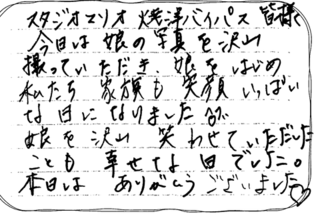 スタジオマリオ 焼津バイパス 皆様
今日は 娘の 写真を 沢山
撮っていただき、娘を はじめ
私たち 家族も 笑顔 いっぱい
な 日に なりました
娘を 沢山 笑わせていただいた
ことも 幸せな 日でした。
本日は ありがとう ございました♡